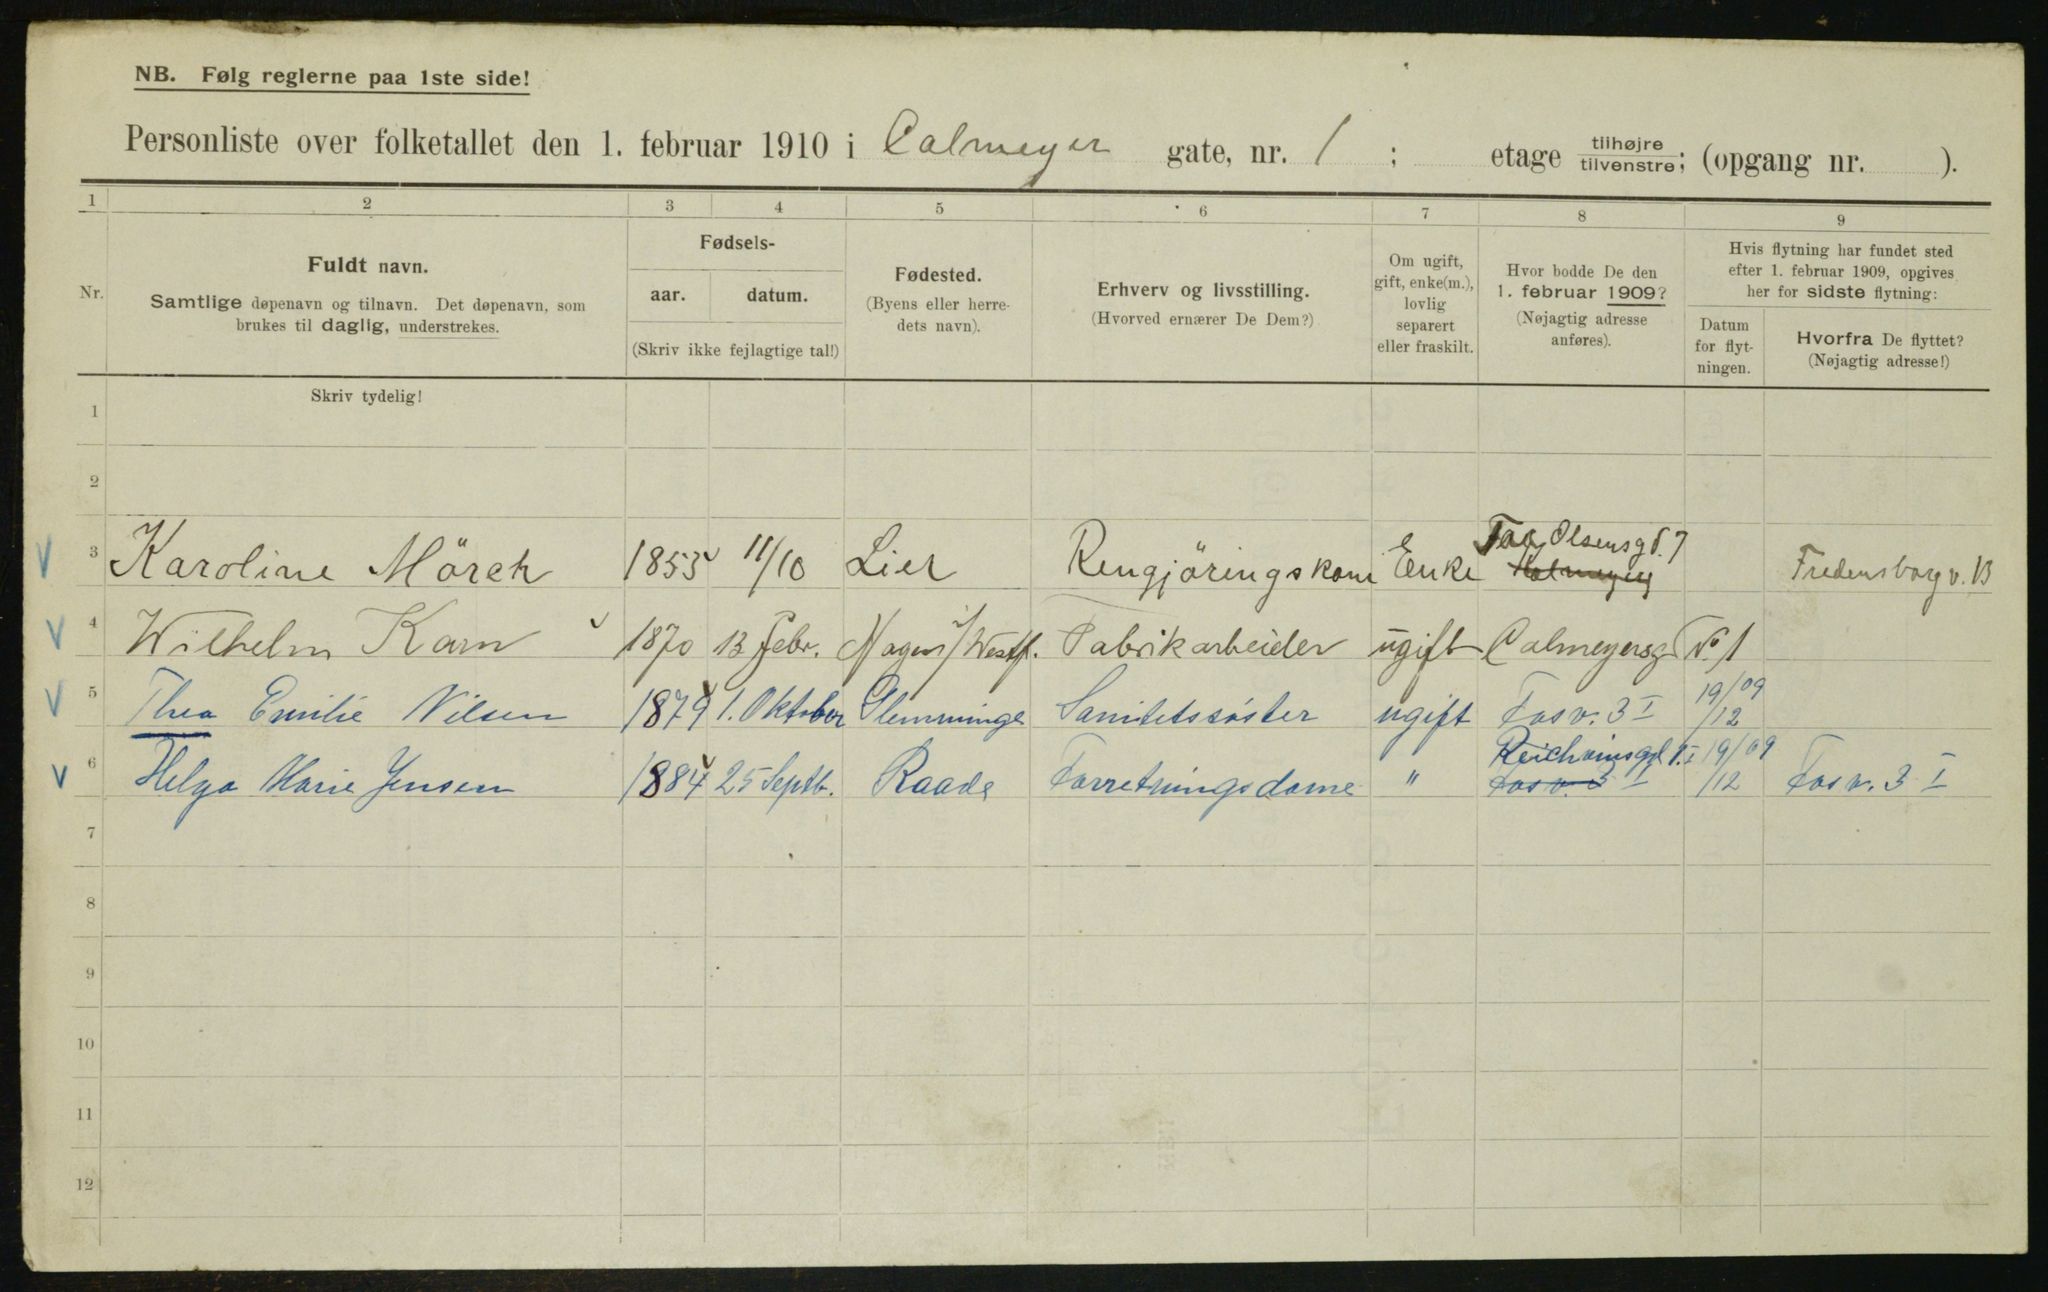 NB. Følg reglerne paa 1ste side!
Personliste over folketallet den 1. februar 1910 i Calmeyer gate, nr. 1 ; etage tilhøjre tilvenstre; (opgang nr. ).
1 2 3 4 5 6 7 8 9
Nr.
Fuldt navn.
Samtlige døpenavn og tilnavn. Det døpenavn, som
brukes til daglig, understrekes.
Fødsels-
aar. datum.
(Skriv ikke fejlagtige tal!)
Fødested.
(Byens eller herre-
dets navn).
Erhverv og livsstilling.
(Hvorved ernærer De Dem?)
Om ugift,
gift, enke(m.),
lovlig
separert
eller fraskilt.
Hvor bodde De den
1. februar 1909?
(Nøjagtig adresse
anføres).
Hvis flytning har fundet sted
efter 1. februar 1909, opgives
her for sidste flytning:
Datum
for flyt-
ningen.
Hvorfra De flyttet?
(Nøjagtig adresse!)
Skriv tydelig!
1
2
3 Karoline Mörch 1855 11/10 Lier Rengjöringskone Enke Olsensgd. 7 Fredensborgv. 13
4 Wilhelm Korn 1870 13 Febr. Westf. Fabrikarbeider ugift Calmeyersgd No 1
5 Thea Emilie Nilsen 1879 1. Oktober Glemminge Sanitetssöster ugift Fosv. 3 I 19/12 09
6 Helga Marie Jensen 1884 25 Septb. Raade Forretningsdame " Fosv. 3 I 19/12 09 Fosv. 3 I
7
8
9
10
11
12